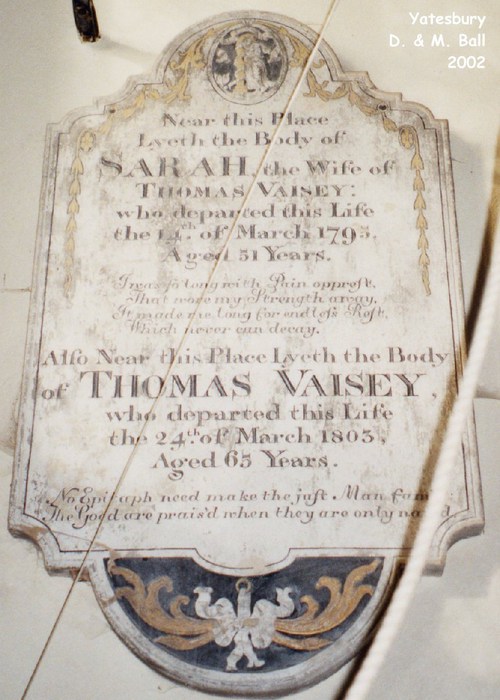 Yatesbury
D. & M. Ball
2002
Near this Place
Lyeth the Body of
SARAH, the Wife of
THOMAS VAISEY:
who departed this Life
the 14th. of March 1795.
Aged 51 Years.
I was so long with Pain opprest,
That wore my Strength away,
It made me long for endless Rest,
Which never can decay.
Also Near this Place Lyeth the Body
of THOMAS VAISEY,
who departed this Life
the 24th. of March 1803,
Aged 65 Years.
No Epitaph need make the just Man
The Good are prais'd when they are only